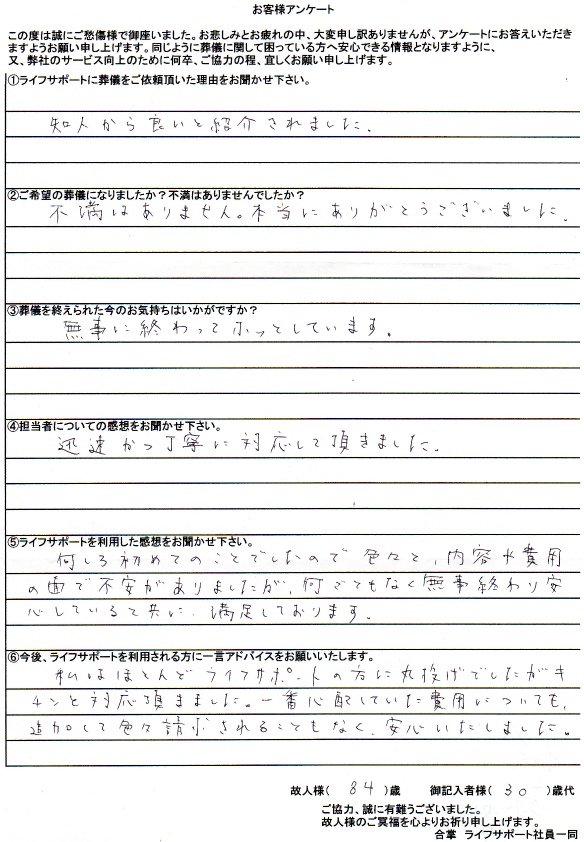 お客様アンケート
この度は誠にご愁傷様で御座いました。お悲しみとお疲れの中、大変申し訳ありませんが、アンケートにお答えいただき
ますようお願い申し上げます。同じように葬儀に関して困っている方へ安心できる情報となりますように、
又、弊社のサービス向上のために何卒、ご協力の程、宜しくお願い申し上げます。
①ライフサポートに葬儀をご依頼頂いた理由をお聞かせ下さい。
知人から良いと紹介されました。
②ご希望の葬儀になりましたか？不満はありませんでしたか？
不満はありません。本当にありがとうございました。
③葬儀を終えられた今のお気持ちはいかがですか？
無事に終わってホッとしています。
④担当者についての感想をお聞かせ下さい。
迅速かつ丁寧に対応して頂きました。
⑤ライフサポートを利用した感想をお聞かせ下さい。
何しろ初めてのことでしたので色々と、内容や費用
の面で不安がありましたが、何ごともなく無事終わり安
心していると共に、満足しております。
⑥今後、ライフサポートを利用される方に一言アドバイスをお願いいたします。
私はほとんどライフサポートの方に丸投げでしたがキ
チンと対応頂きました。一番心配していた費用についても、
追加して色々請求されることもなく、安心いたしました。
故人様（ 84 ）歳 御記入者様（ 30 ）歳代
ご協力、誠に有難うございました。
故人様のご冥福を心よりお祈り申し上げます。
合掌 ライフサポート社員一同